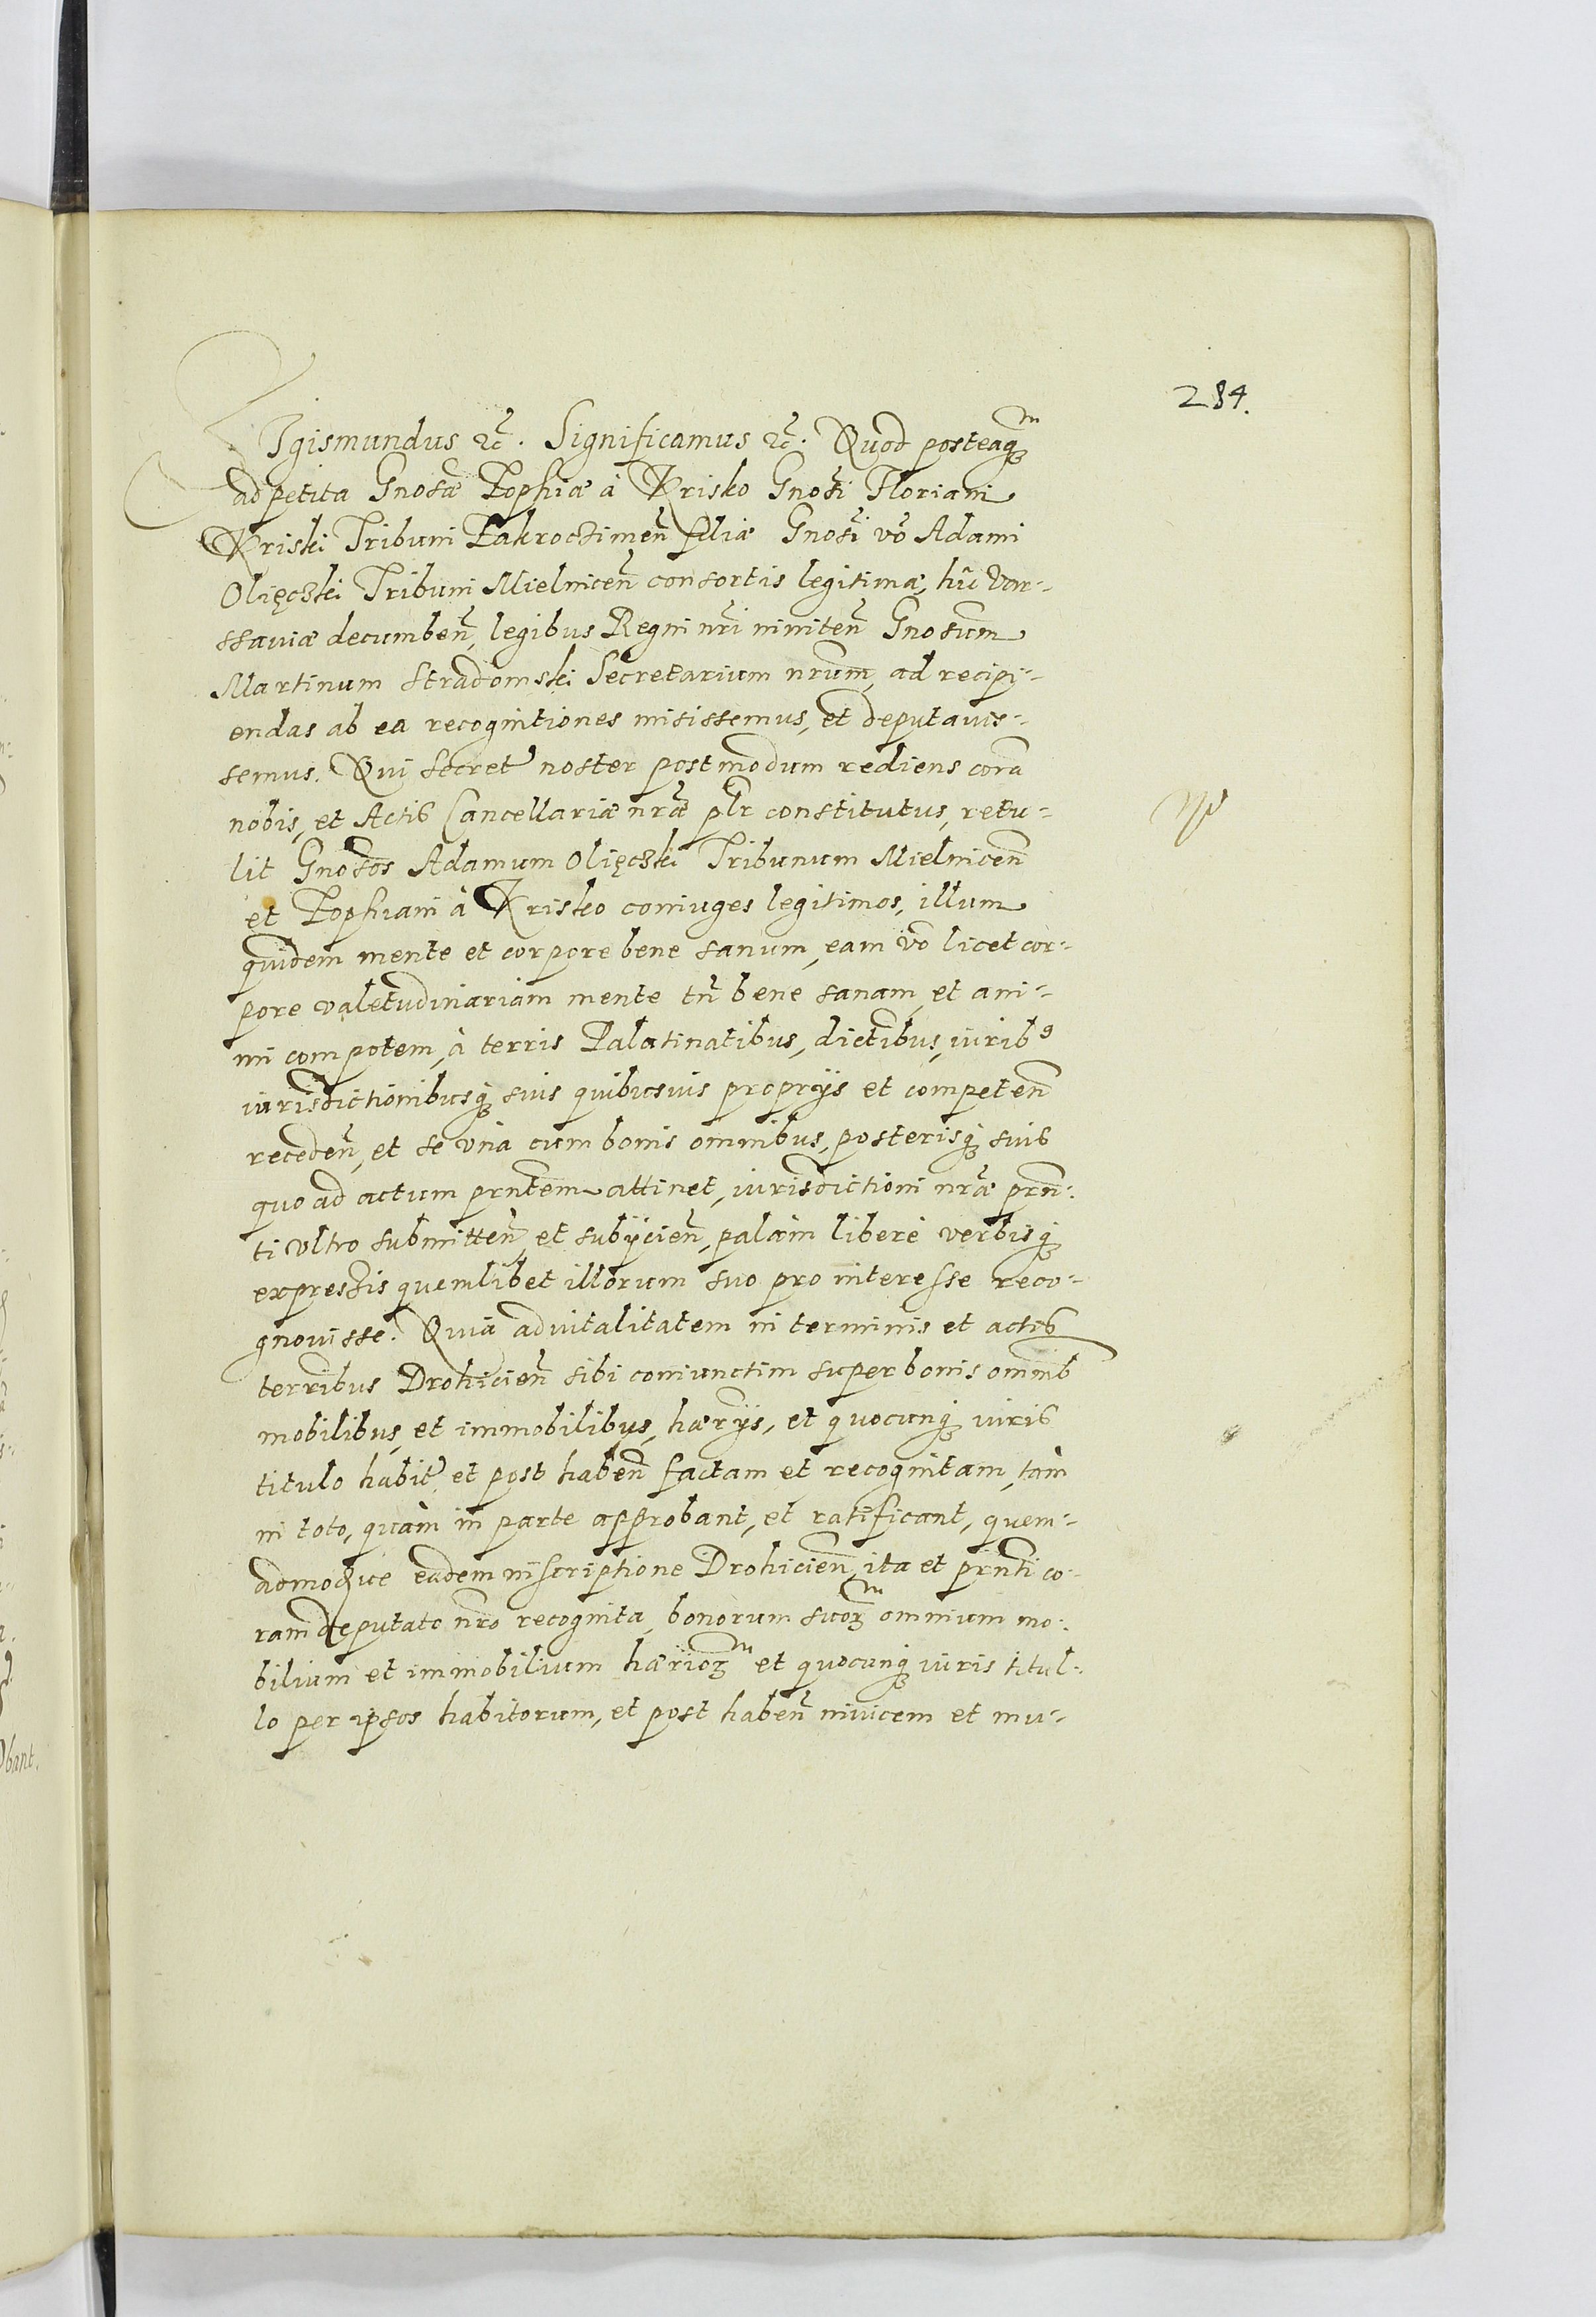 284.
SIgismundus &c̃. Significamus &c̃. Quod posteaqꝫm
ad petita Gnosæ Zophiæ à Krisko Gnosi Floriani
Kriski Tribuni Zakroczimen̄ filiæ Gnosi vō Adami
Olięczki Tribuni Mielnicen̄ consortis legitimæ, hic̄ Var-
ssaviæ decumben̄, legibus Regni nr̄i inniten̄ Gnosum
Martinum Stradomski Secretarium nrum, ad recipi-
endas ab ea recognitiones misissemus, et deputavis-
semus. Qui secret noster postmodum rediens corā
nobis, et Actis Cancellariæ nræ plr constitutus, retu-
lit Gnosos Adamum Olięczki Tribunum Mielnicen̄
et Zophiam à Krisko coniuges legitimos, illum
quidem mente et corpore bene sanum, eam vō licet cor-
pore valetudinariam mente tn̄ bene sanam, et ani-
mi compotem, à terris Palatinatibus, dictibus, iurib9
iurisdictionibusqꝫ suis quibusvis proprijs et competen̄
receden̄, et se vnà cum bonis omnibus, posterisqꝫ suis
quo ad actum prntem attinet, iurisdictioni nræ prn-
ti vltro submitten̄, et subijcien̄, palàm liberè verbisqꝫ
expressis quemlibet illorum suo pro interesse reco-
gnovisse. Quia advitalitatem in terminis et actis
terribus Drohicien̄ sibi coniunctim super bonis omnib
mobilibus, et immobilibus, hærijs, et quocunqꝫ iuris
titulo habit et post haben̄ factam et recognitam, tàm
in toto, quàm in parte approbant, et ratificant, quem-
admodque eadem inscriptione Drohicien̄, ita et prnti co-
ram deputato nro recognita, bonorum suoꝝm omnium mo-
bilium et immobilium hærioꝝm et quocunqꝫ iuris titul-
lo per ipsos habitorum, et post haben̄ invicem et mu-